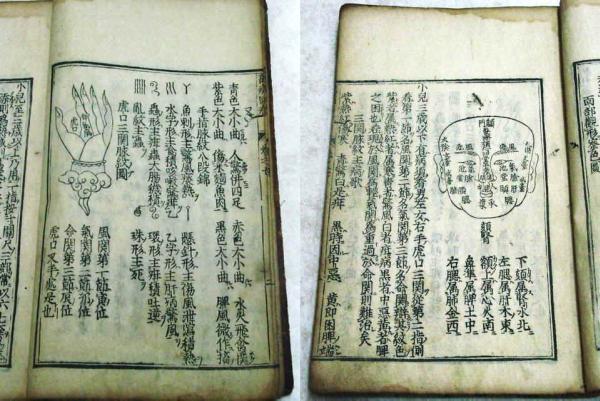 下頦属腎水北
左腮属肝木東
額上属心火南
鼻準属脾土中
右腮属肺金西
頦腎
小兒三歲以下有病須看男左女右手虎口三關從第二指側
看第一節名風關第二節名氣關第三節名命關辨其紋色
紫者属熱紅者属寒青者驚風白者疳病黑者中惡黃者脾
之困也若現於風關為輕氣關為重過於命關則難治矣
三關脉主病歌
紫熱紅傷寒 青驚白是疳 黑時因中惡 黃即困脾端
青色大小曲 人驚并四足 赤色大小曲 水火飛禽撲
紫色大小曲 傷米麵魚肉 黑色大小曲 脾風微作搐
手指脉紋八段錦
魚刺形主驚風熱 懸針形主傷風泄瀉積熱
水字形主食積咳嗽驚疳 乙字形主肝病驚風
蟲形主疳蟲大腸穢積 環形主疳積吐逆
亂紋主蟲 珠形主死
虎口三關脉紋圖
風關第一節寅位
氣關第二節卯位
命關第三節辰位
虎口叉手處是也
虎口
小兒至三歲以上乃以一指按寸關尺三部常以六七至